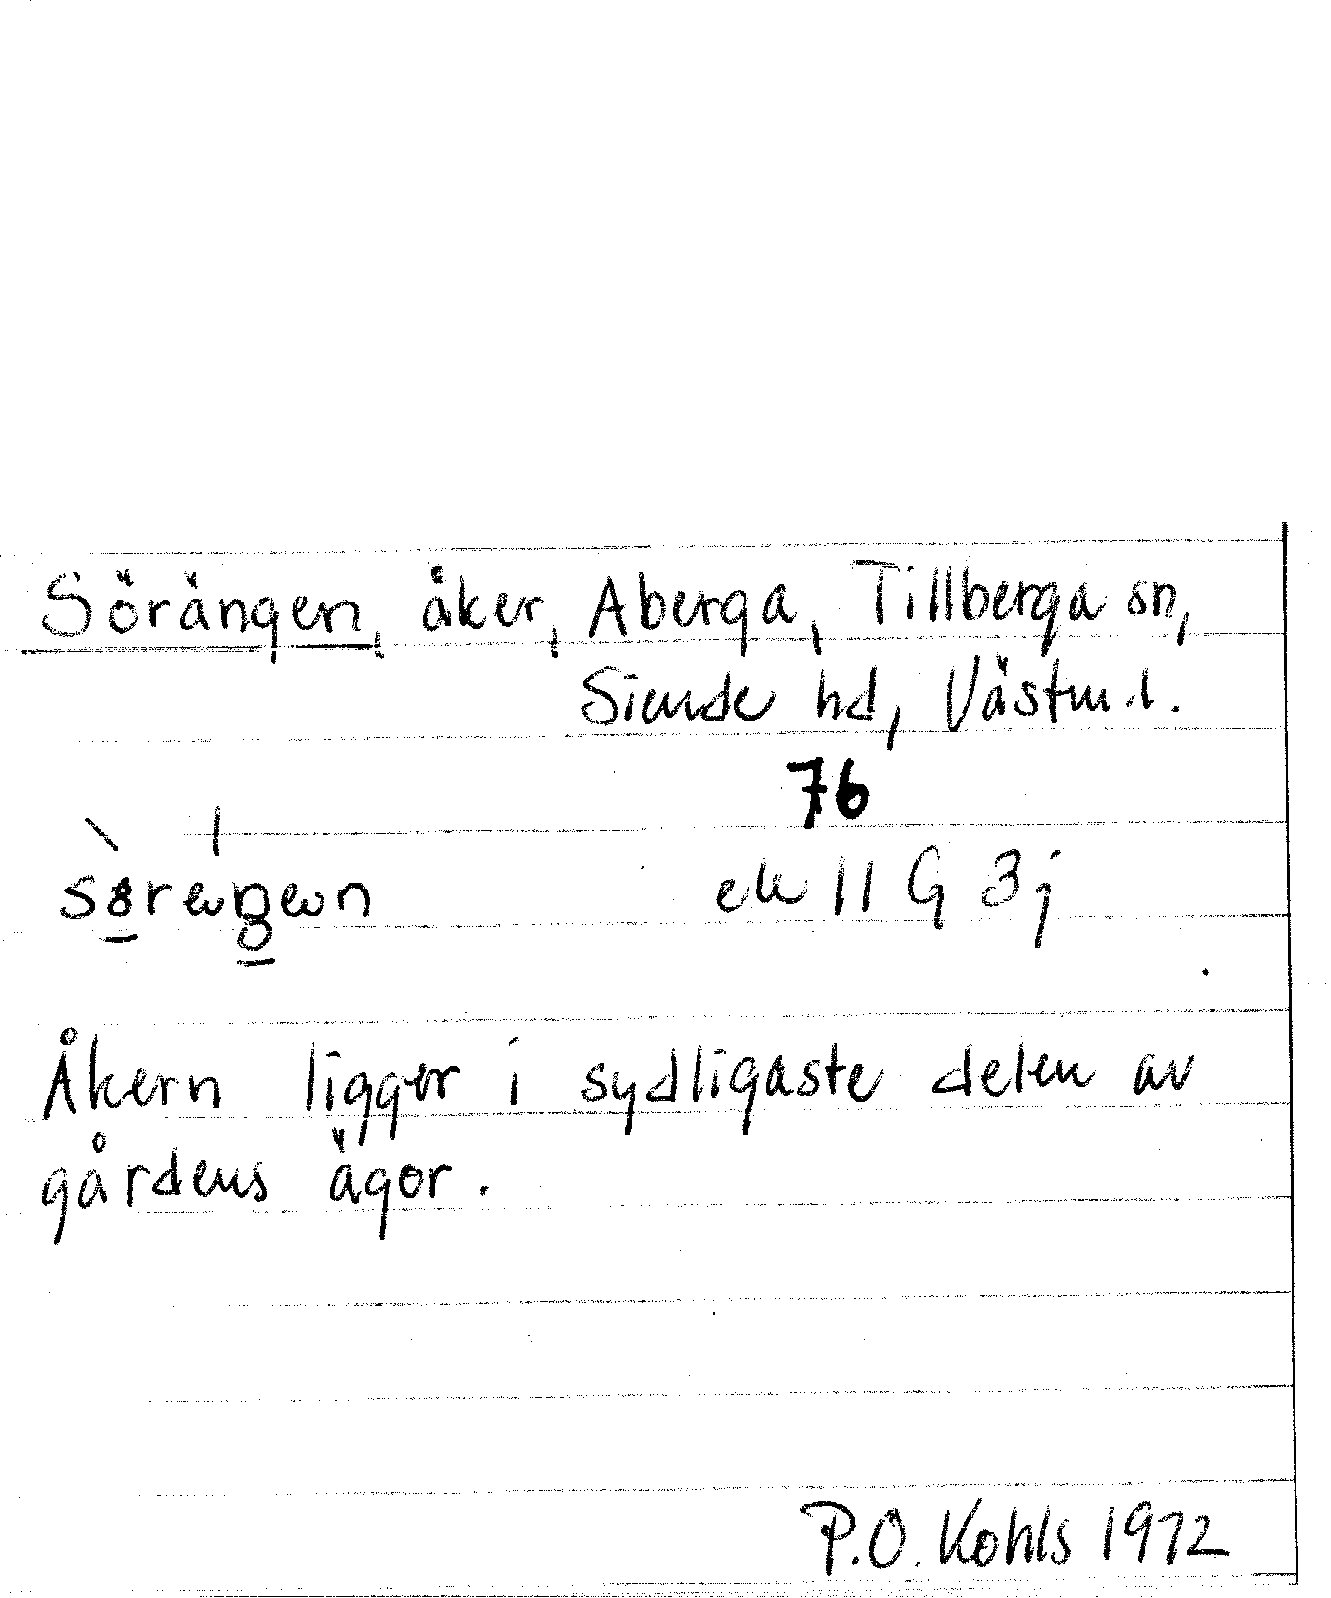 Sörängen, åker, Aberga, Tillberga sn,
Siende hd, Västm.l.
76
ek 11 G 3j
Åkern ligger i sydligaste delen av
gårdens ägor.
P.O. Kohls 1972